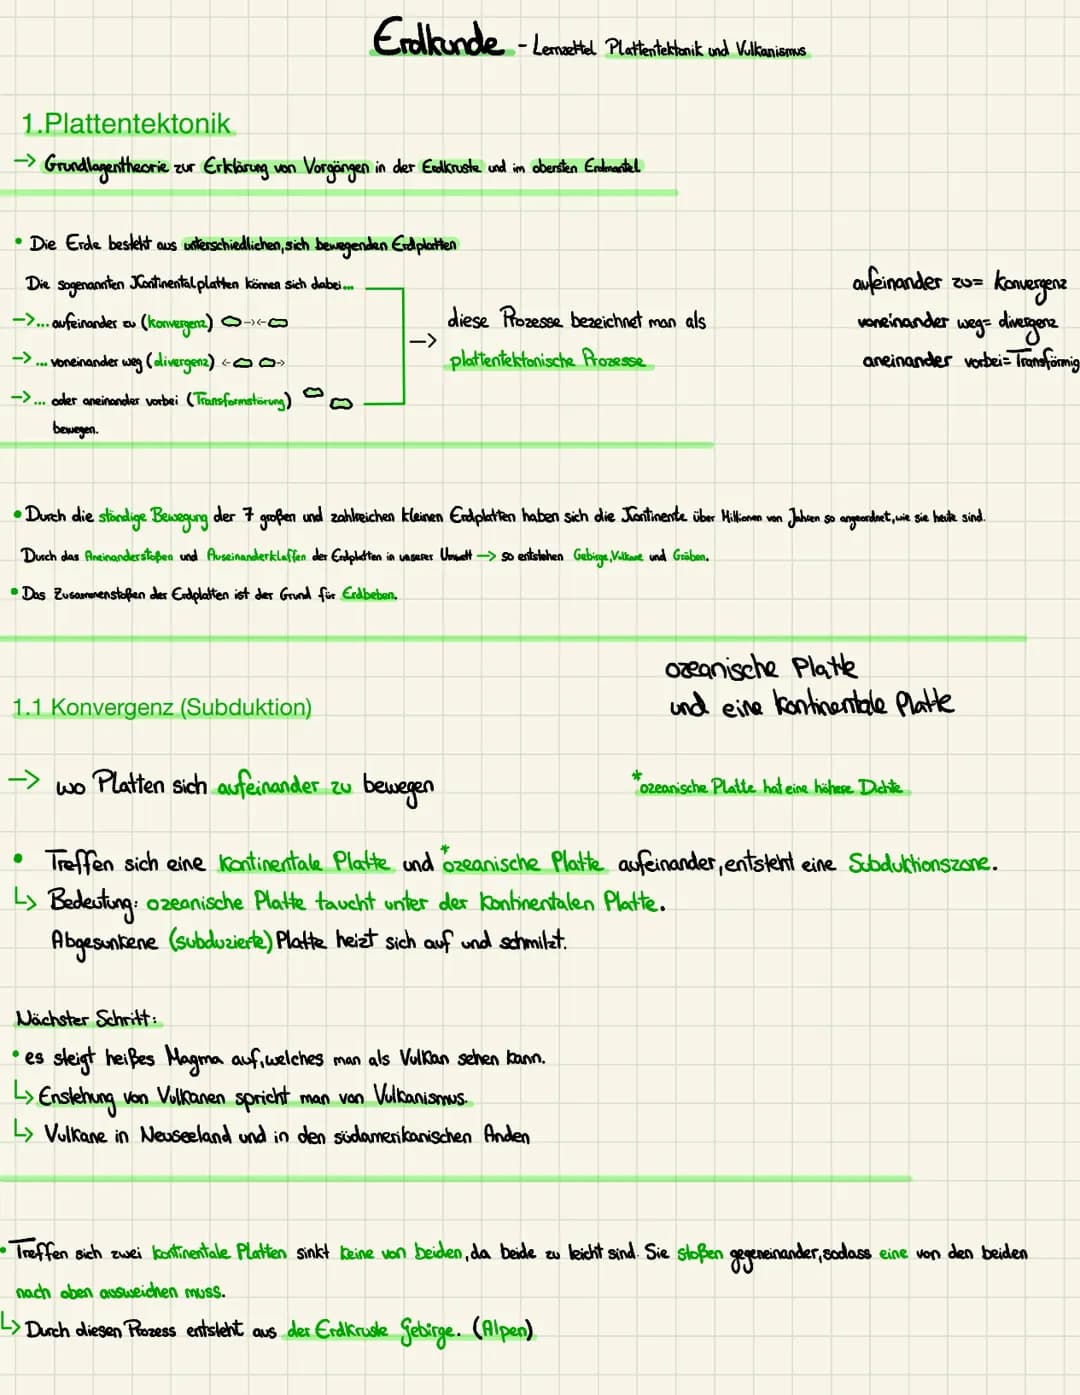 Erdkunde - Lernzettel Plattentektonik und Vulkanismus
1.Plattentektonik
-> Grundlagentheorie zur Erklärung von Vorgängen in der Erdkruste und im obersten Erdmantel
• Die Erde besteht aus unterschiedlichen, sich bewegenden Erdplatten
Die sogenannten Kontinentalplatten können sich dabei...
->... aufeinander zu (konvergenz) -><-
-> ... voneinander weg (divergenz) <- ->
->... oder aneinander vorbei (Transformstörung)
bewegen.
-> diese Prozesse bezeichnet man als
plattentektonische Prozesse
aufeinander zu= konvergenz
voneinander weg= divergenz
aneinander vorbei= Transförmig
• Durch die ständige Bewegung der 7 großen und zahlreichen kleinen Erdplatten haben sich die Kontinente über Millionen von Jahren so angeordnet, wie sie heute sind.
Durch das Aneinanderstoßen und Auseinanderklaffen der Erdplatten in unserer Umwelt -> so entstehen Gebirge, Vulkane und Gräben.
• Das Zusammenstoßen der Erdplatten ist der Grund für Erdbeben.
ozeanische Platte
und eine kontinentale Platte
1.1 Konvergenz (Subduktion)
-> wo Platten sich aufeinander zu bewegen
*ozeanische Platte hat eine höhere Dichte
• Treffen sich eine kontinentale Platte und *ozeanische Platte aufeinander, entsteht eine Subduktionszone.
↳ Bedeutung: ozeanische Platte taucht unter der kontinentalen Platte.
Abgesunkene (subduzierte) Platte heizt sich auf und schmilzt.
Nächster Schritt:
• es steigt heißes Magma auf, welches man als Vulkan sehen kann.
↳ Enstehung von Vulkanen spricht man von Vulkanismus.
↳ Vulkane in Neuseeland und in den südamerikanischen Anden
• Treffen sich zwei kontinentale Platten sinkt keine von beiden, da beide zu leicht sind. Sie stoßen gegeneinander, sodass eine von den beiden
nach oben ausweichen muss.
↳ Durch diesen Prozess entsteht aus der Erdkruste Gebirge. (Alpen)